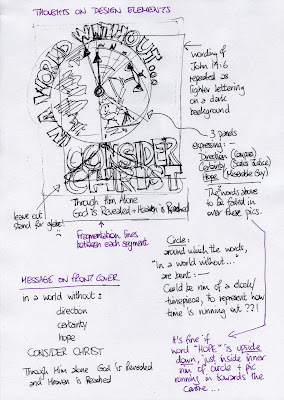 THOUGHTS ON DESIGN ELEMENTS
IN A WORLD WITHOUT...
CONSIDER
CHRIST
Through Him Alone
God is Revealed + Heaven is Reached
wording of
John 14:6
repeated as
lighter lettering
on a dark
background
3 panels
expressing:-
Direction (Compass)
Certainty (Scales Justice)
Hope (Miserable Guy)
The words above
to be faded in
over these pics.
leave out
stand for globe!
Fragmentation lines
between each segment
Circle:
around which the words,
"In a world without..."
are bent:-
Could be rim of a clock/
timepiece, to represent how
time is running out ??!
MESSAGE ON FRONT COVER
in a world without:
direction
certainty
hope
CONSIDER CHRIST
Through Him alone God is Revealed
and Heaven is Reached
It's fine if
word "HOPE" is upside
down, just inside inner
rim of circle + pic
running in towards the
centre...